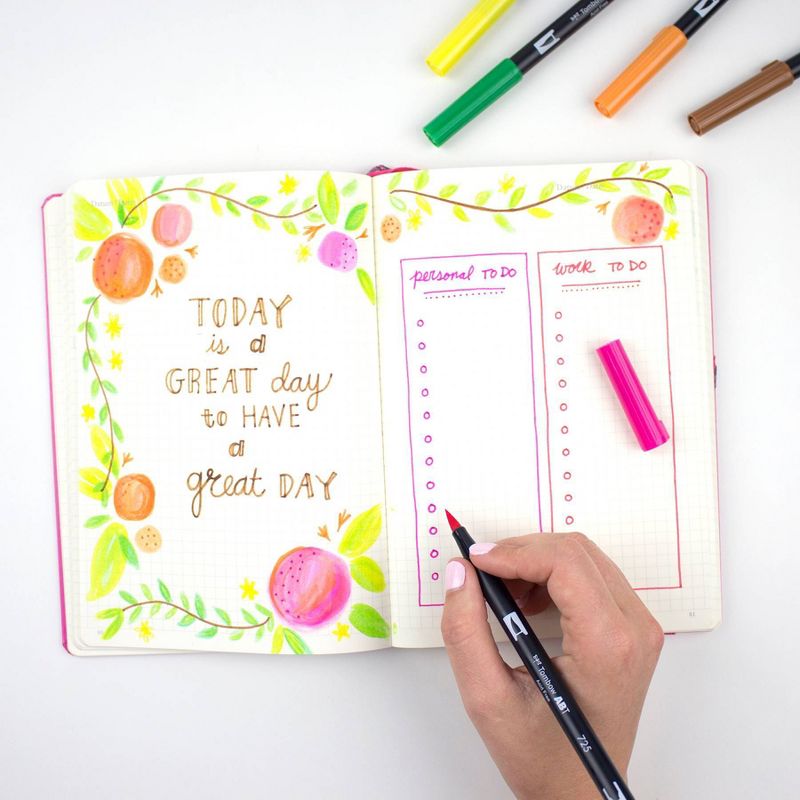 TODAY
is a
GREAT day
to HAVE
a
great DAY
personal TO DO
work TO DO
Tombow
Tombow ABT
725